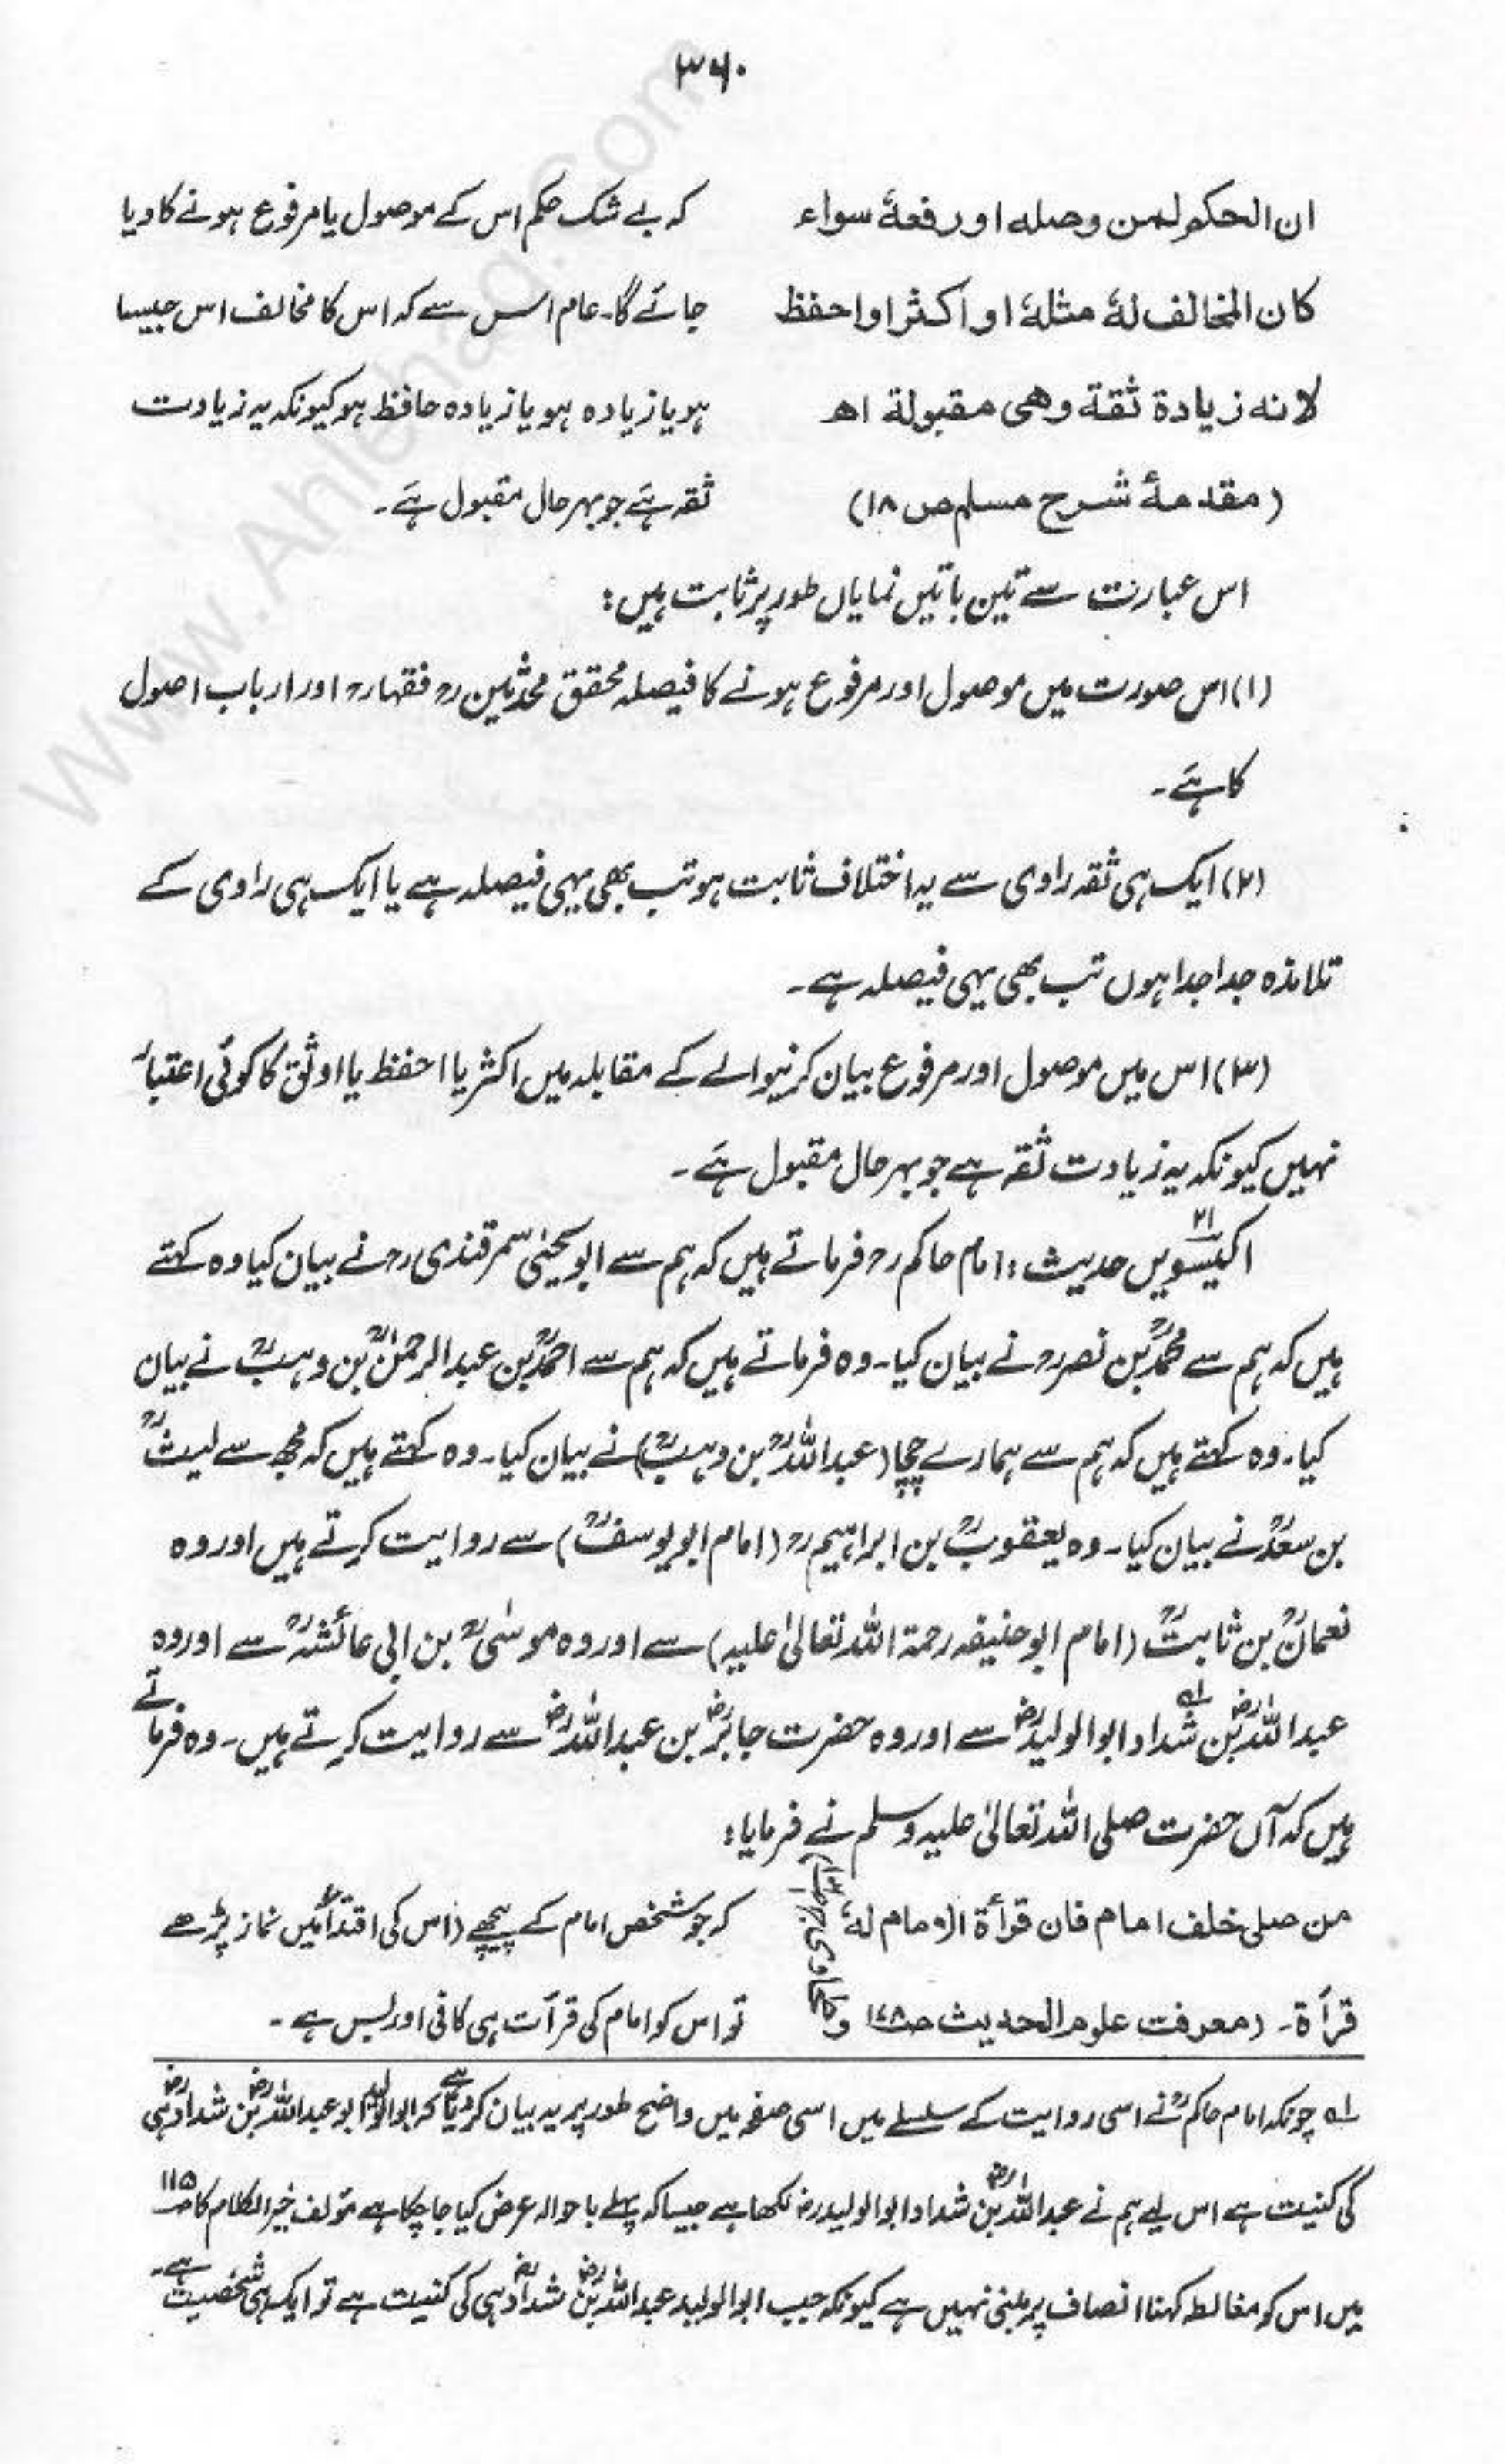 ۳۶۰
ان الحكم لمن وصله او رفعهٗ سواء
كان المخالف لهٗ مثلهٗ او اكثر او احفظ
لانه زيادة ثقة وهى مقبولة اھ
(مقدمهٔ شرح مسلم ص ۱۸)
کہ بے شک حکم اس کے موصول یا مرفوع ہونے کا دیا
جائے گا۔ عام اس سے کہ اس کا مخالف اس جیسا
ہو یا زیادہ ہو یا زیادہ حافظ ہو کیونکہ یہ زیادت
ثقہ ہَے جو بہر حال مقبول ہَے۔
اس عبارت سے تین باتیں نمایاں طور پر ثابت ہیں:
(۱) اس صورت میں موصول اور مرفوع ہونے کا فیصلہ محقق محدثینؒ فقہاءؒ اور ارباب اصول
کا ہَے۔
(۲) ایک ہی ثقہ راوی سے یہ اختلاف ثابت ہو تب بھی یہی فیصلہ ہے یا ایک ہی راوی کے
تلامذہ جدا جدا ہوں تب بھی یہی فیصلہ ہے۔
(۳) اس میں موصول اور مرفوع بیان کرنیوالے کے مقابلہ میں اکثر یا احفظ یا اوثق کا کوئی اعتبار
نہیں کیونکہ یہ زیادت ثقہ ہے جو بہر حال مقبول ہَے۔
اکیسویں ۲۱ حدیث: امام حاکمؒ فرماتے ہیں کہ ہم سے ابو یحییٰ سمرقندیؒ نے بیان کیا وہ کہتے
ہیں کہ ہم سے محمدؒ بن نصرؒ نے بیان کیا۔ وہ فرماتے ہیں کہ ہم سے احمدؒ بن عبدالرحمٰنؒ بن وہبؒ نے بیان
کیا۔ وہ کہتے ہیں کہ ہم سے ہمارے چچا (عبداللہؒ بن وہبؒ) نے بیان کیا۔ وہ کہتے ہیں کہ مجھ سے لیثؒ
بن سعدؒ نے بیان کیا۔ وہ یعقوبؒ بن ابراہیمؒ (امام ابو یوسفؒ) سے روایت کرتے ہیں اور وہ
نعمانؒ بن ثابتؒ (امام ابو حنیفہ رحمۃ اللہ تعالیٰ علیہ) سے اور وہ موسٰیؒ بن ابی عائشہؒ سے اور وہ
عبداللہؓ بن شداد ۱ھ ابوالولیدؓ سے اور وہ حضرت جابرؓ بن عبداللہؓ سے روایت کرتے ہیں۔ وہ فرماتے
ہیں کہ آں حضرت صلی اللہ تعالیٰ علیہ وسلم نے فرمایا:
من صلى خلف امام فان قرأة الامام لهٗ
قرأة۔ (معرفت علوم الحديث ص۱۷۸ و طحاوی ج۱
کہ جو شخص امام کے پیچھے (اس کی اقتداء) میں نماز پڑھے
تو اس کو امام کی قرآت ہی کافی اور بس ہے۔
۱ھ چونکہ امام حاکمؒ نے اسی روایت کے سلسلے میں اسی صفحہ میں واضح طور پر یہ بیان کر دیا ہے کہ ابوالولید ابو عبداللہؓ بن شدادؓ ہی
کی کنیت ہے اس لیے ہم نے عبداللہؓ بن شداد ابوالولیدؓ لکھا ہے جیسا کہ پہلے باحوالہ عرض کیا جا چکا ہے مؤلف خیر الکلام کا ص۱۱۵
میں اس کو مغالطہ کہنا انصاف پر مبنی نہیں ہے کیونکہ جب ابوالولید عبداللہؓ بن شدادؓ ہی کی کنیت ہے تو ایک ہی شخصیت ہے۔
www.Ahlehaq.Com